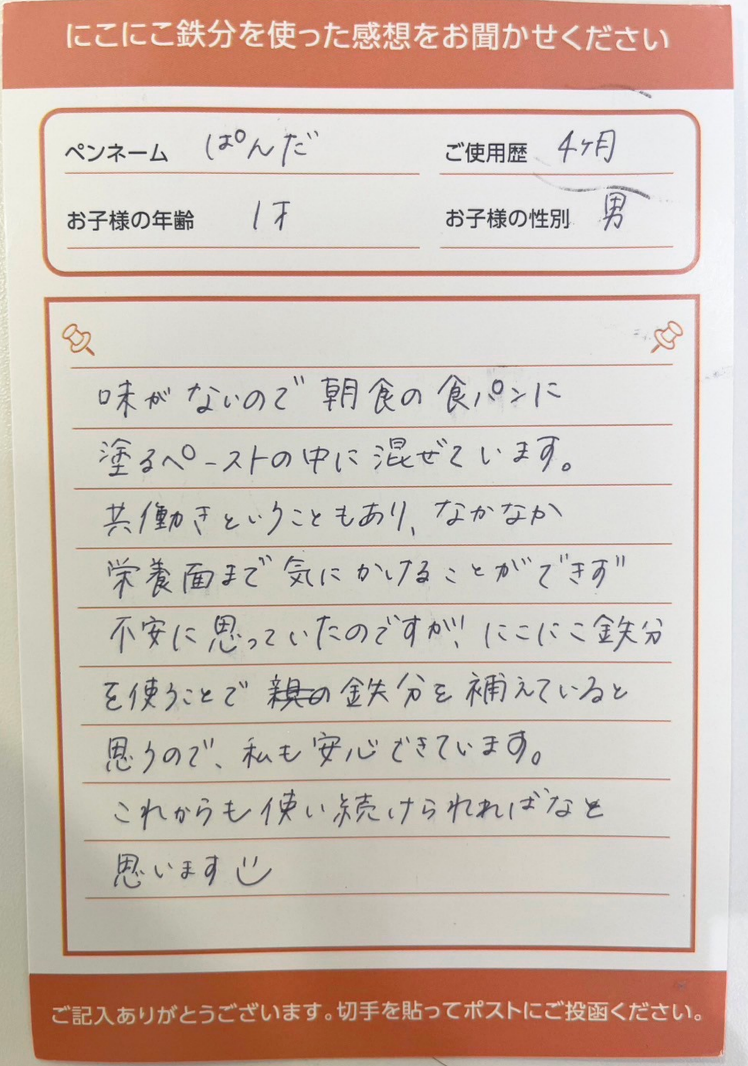 にこにこ鉄分を使った感想をお聞かせください
ペンネーム ぱんだ ご使用歴 4ヶ月
お子様の年齢 1才 お子様の性別 男
味がないので朝食の食パンに
塗るペーストの中に混ぜています。
共働きということもあり、なかなか
栄養面まで気にかけることができず
不安に思っていたのですが、にこにこ鉄分
を使うことで 鉄分を補えていると
思うので、私も安心できています。
これからも使い続けられればなと
思います
ご記入ありがとうございます。切手を貼ってポストにご投函ください。